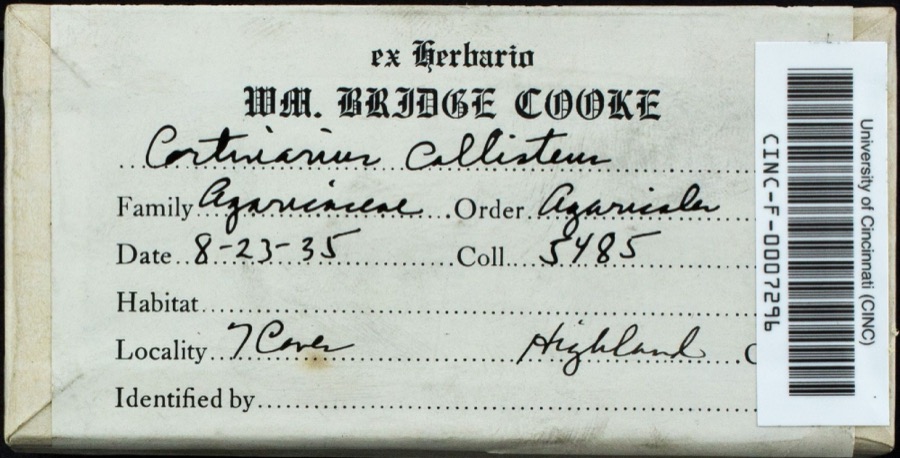 ex Herbario
WM. BRIDGE COOKE
Cortinarius Callisteus
Family Agaricaceae Order Agaricales
Date 8-23-35 Coll. 5485
Habitat
Locality 7 Caves Highland C
Identified by
CINC-F-0007296
University of Cincinnati (CINC)